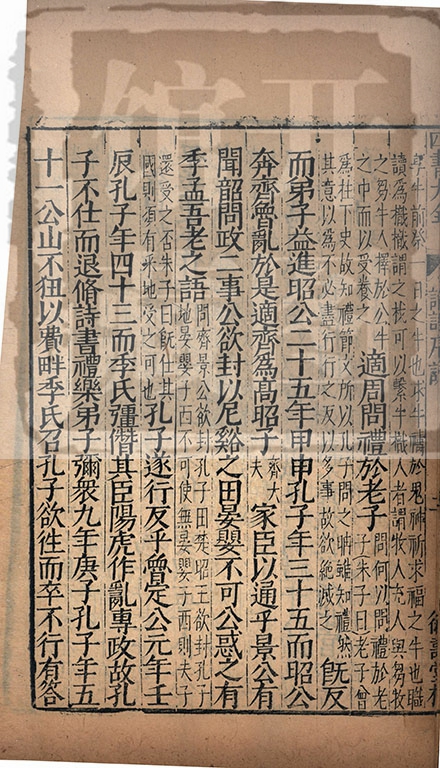 享牛前祭一日之牛也求牛禱於鬼神祈求福之牛也職
讀爲樴樴謂之杙可以繫牛樴人者謂牧人充人與芻牧
之芻牛人擇於公牛
之中而以受養之
適周問禮於老子
問何以問禮於老
子朱子曰老子曾
爲柱下史故知禮節文所以孔子問之聃雖知禮然
其意以爲不必盡行行之反以多事故欲絶滅之
旣反
而弟子益進昭公二十五年甲申孔子年三十五而昭公
奔齊魯亂於是適齊爲高昭子
齊大
夫
家臣以通乎景公有
聞韶問政二事公欲封以尼谿之田晏嬰不可公惑之有
季孟吾老之語
問齊景公欲封孔子田楚昭王欲封孔子
地晏嬰子西不可使無晏嬰子西則夫子
還受之否朱子曰旣仕其
國則須有采地受之可也
孔子遂行反乎魯定公元年壬
辰孔子年四十三而季氏彊僭其臣陽虎作亂專政故孔
子不仕而退脩詩書禮樂弟子彌衆九年庚子孔子年五
十一公山不狃以費畔季氏召孔子欲往而卒不行有答